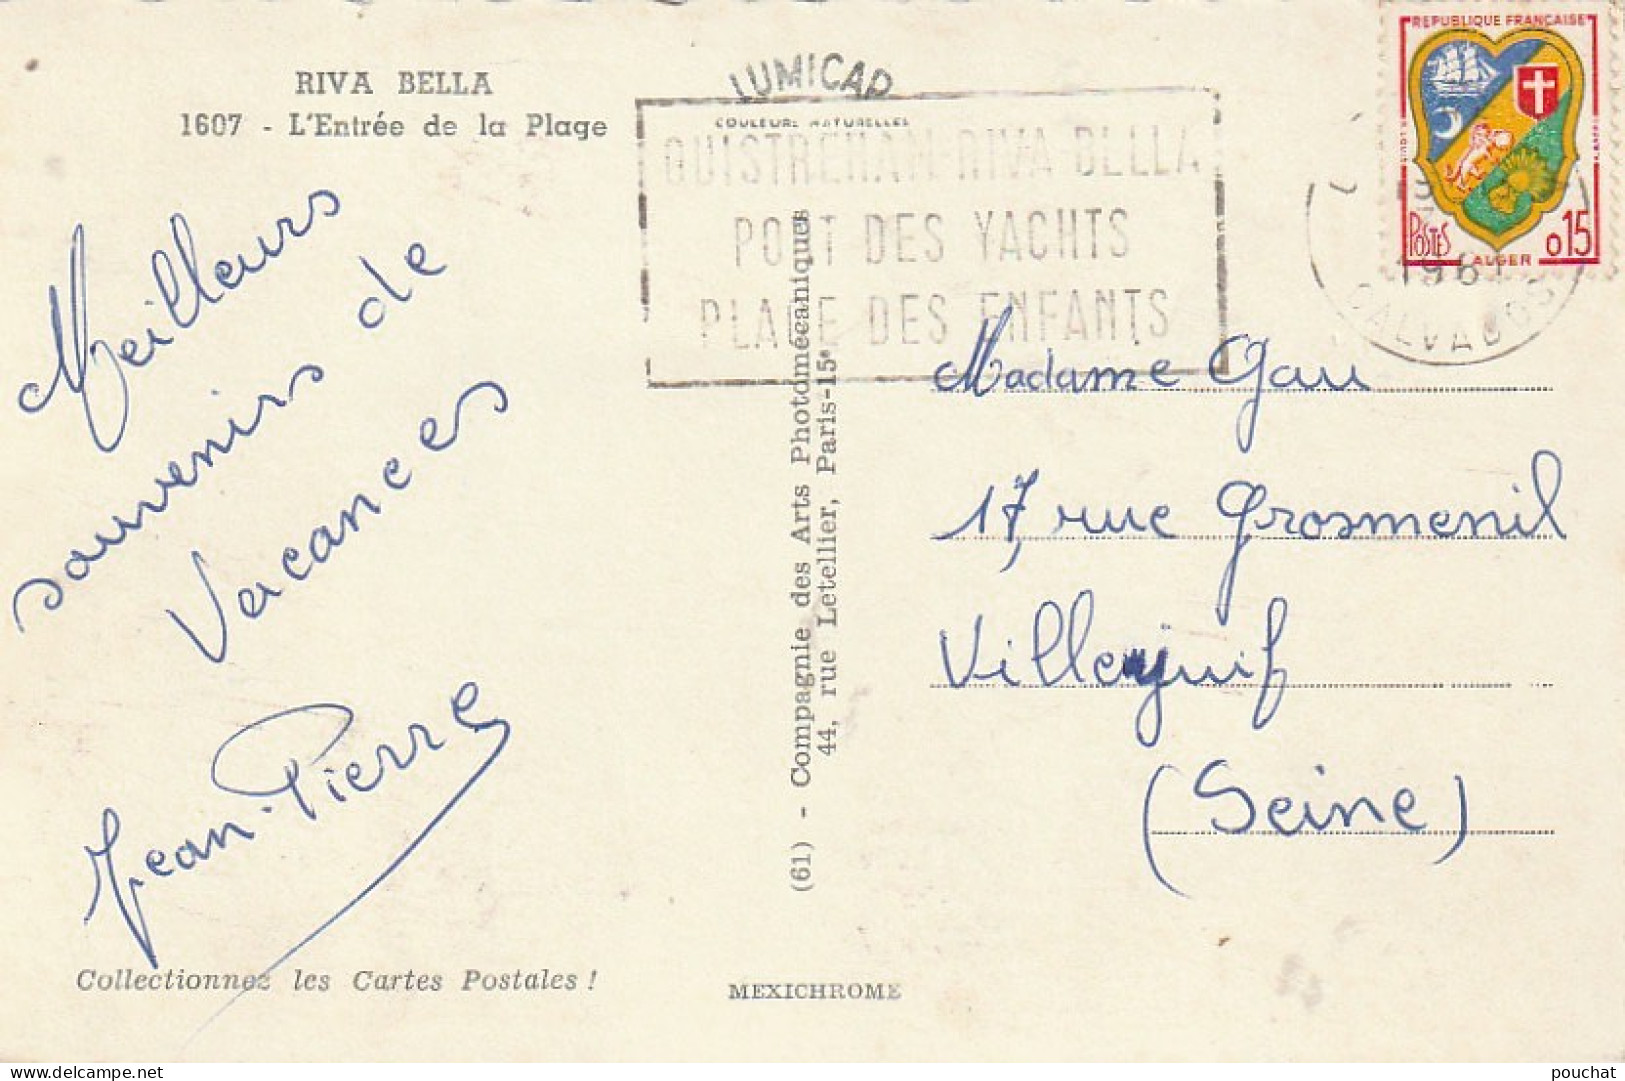 RIVA BELLA
1607 - L'Entrée de la Plage
Meilleurs
souvenirs de
Vacances
Jean-Pierre
Collectionnez les Cartes Postales !
LUMICAP
COULEURS NATURELLES
OUISTREHAM-RIVA-BELLA
PORT DES YACHTS
PLAGE DES ENFANTS
(61) - Compagnie des Arts Photomécaniques
44, rue Letellier, Paris-15e
MEXICHROME
REPUBLIQUE FRANÇAISE
POSTES
ALGER
0,15
CALVADOS
Madame Gau
17, rue Grosmenil
Villejuif
(Seine)
pouchat